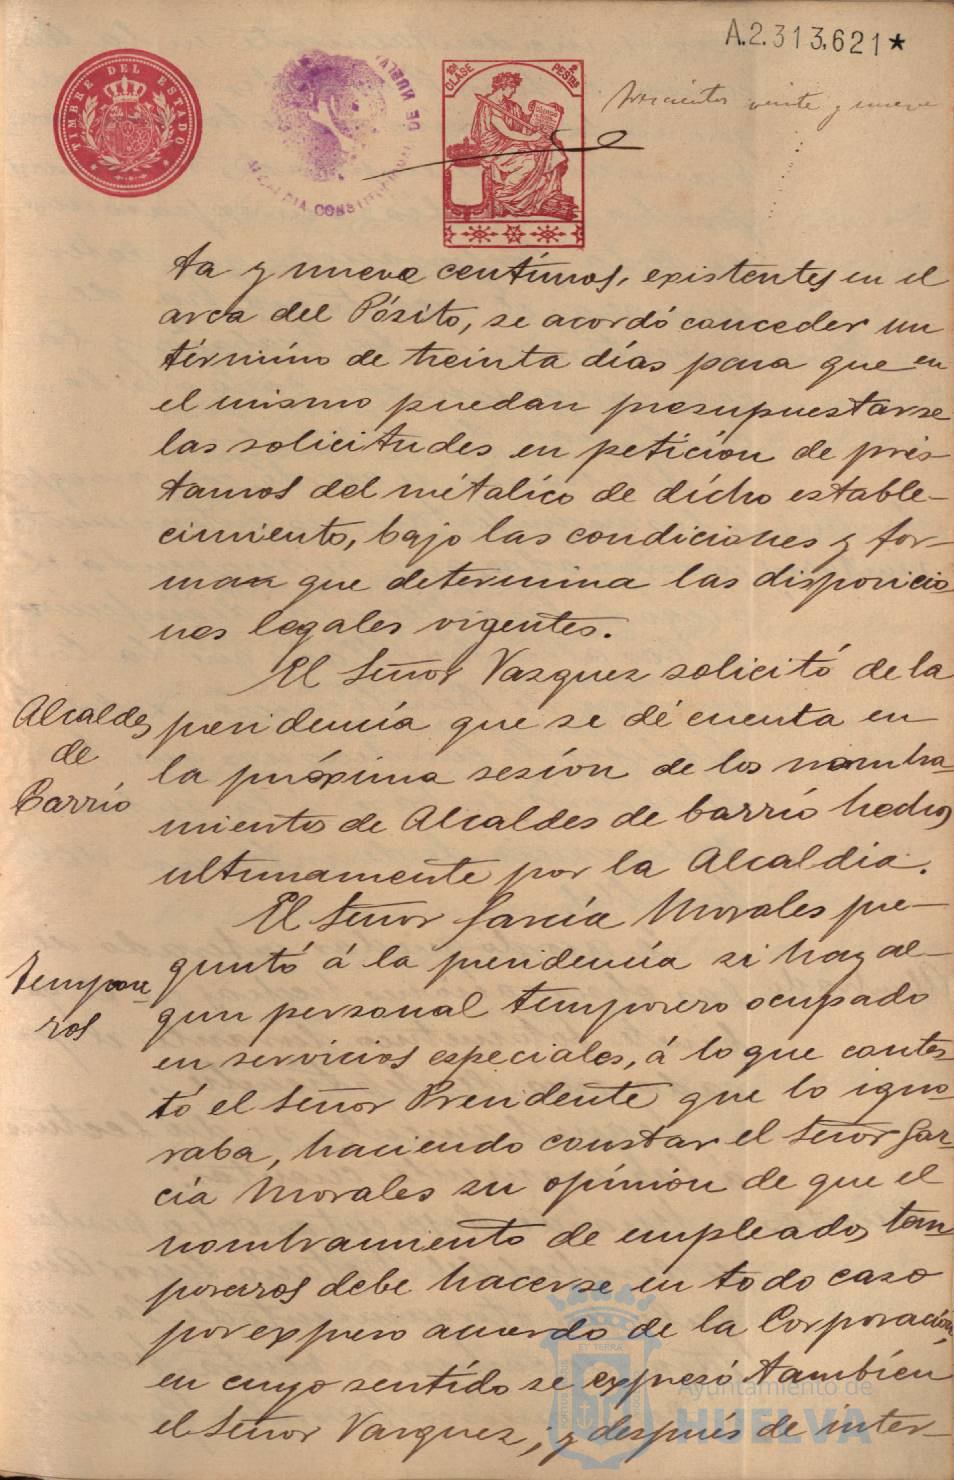 A.2.313,621★
TIMBRE DEL ESTADO
ALCALDIA CONSTITUCIONAL DE HUELVA
10ª CLASE
2 PESTAS
trescientos veinte y nueve
ta y nueve centimos, existentes en el
arca del Pósito, se acordó conceder un
término de treinta días para que en
el mismo puedan presupuestarse
las solicitudes en petición de prés-
tamos del métalico de dicho estable-
cimiento, bajo las condiciones y for-
mas que determina las disposicio
nes legales vigentes.
El Señor Vazquez solicitó de la
Alcaldes
de
Barrio
presidencia que se dé cuenta en
la próxima sesión de los nombra-
mientos de Alcaldes de barrio hechos
ultimamente por la Alcaldia.
El Señor García Morales pre-
Tempore-
ros
guntó á la presidencia si hay al-
gun personal temporero ocupado
en servicios especiales, á lo que contes-
tó el Señor Presidente que lo igno-
raba, haciendo constar el Señor Gar-
cía Morales su opinión de que el
nombramiento de empleados tem
poreros debe hacerse en todo caso
por expreso acuerdo de la Corporación,
en cuyo sentido se expresó también
el Señor Vazquez, y después de inter-
Ayuntamiento de
HUELVA